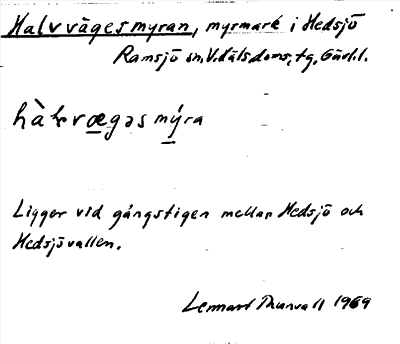 Halvvägesmyran, myrmark i Hedsjö
Ramsjö sn, V. Hälsdoms. tg, Gävl. l.
hàlvvægəs mýra
Ligger vid gångstigen mellan Hedsjö och
Hedsjövallen.
Lennart Thunvall 1969